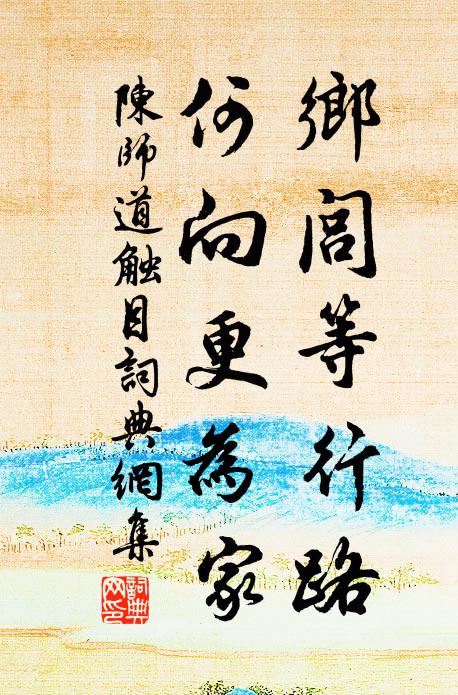 鄉閭等行路
何向更為家
陳師道触目詞典網集
詞典網印